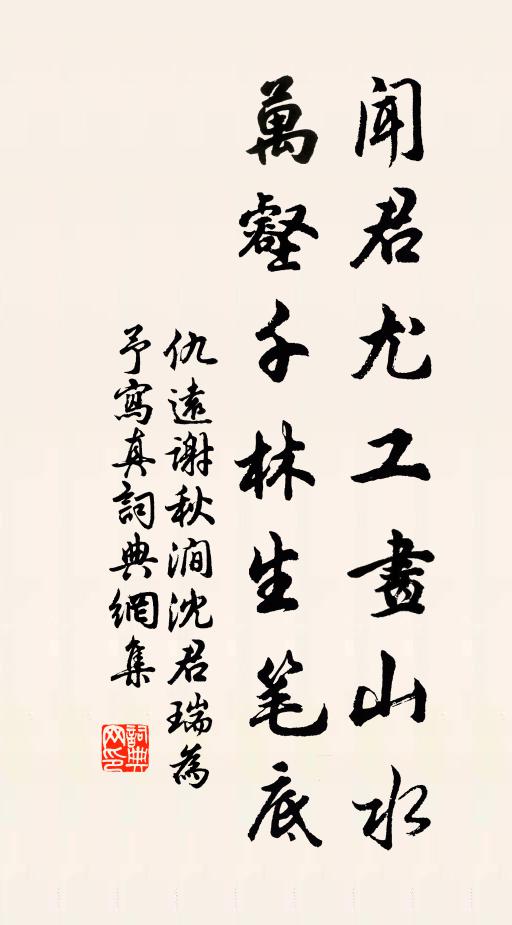 闻君尤工畫山水
萬壑千林生笔底
仇遠謝秋澗沈君瑞為
予寫真詞典網集
詞典網印